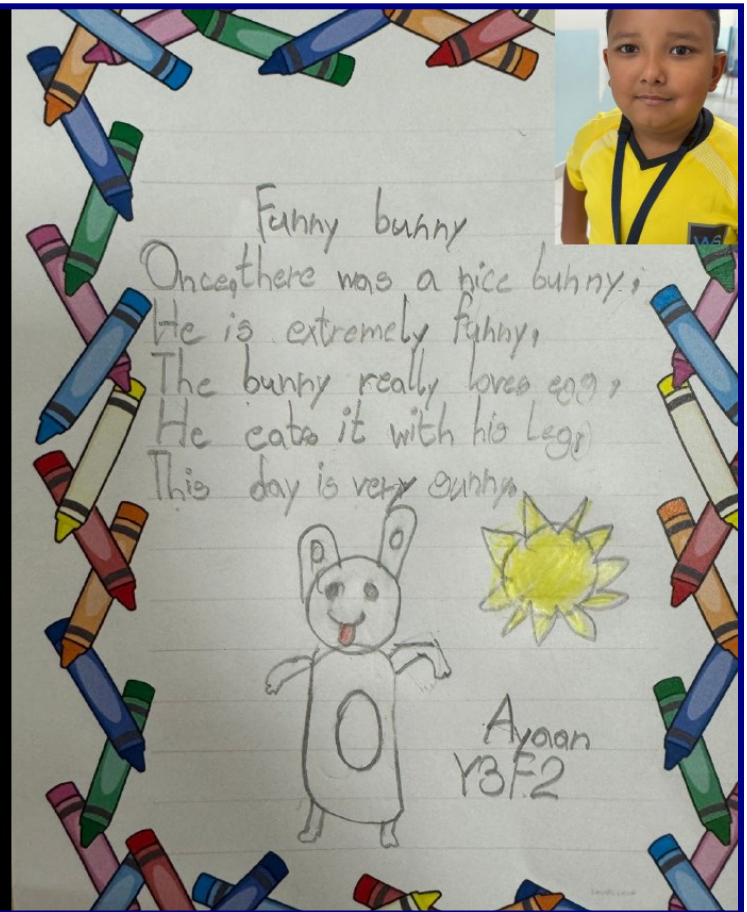 Funny bunny
Once, there was a nice bunny,
He is extremely funny,
The bunny really loves egg,
He eats it with his leg,
This day is very sunny.
Ayaan
Y3F2